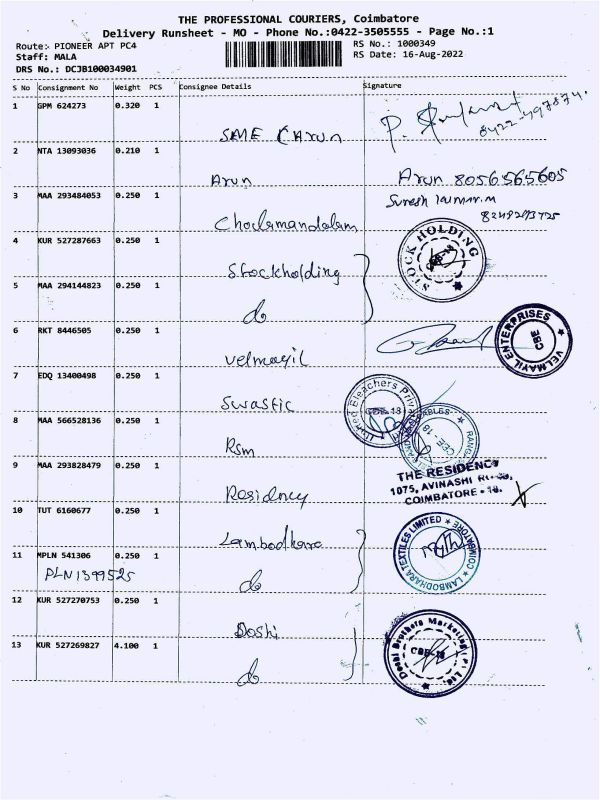 THE PROFESSIONAL COURIERS, Coimbatore
Delivery Runsheet - MO - Phone No.:0422-3505555 - Page No.:1
Route:- PIONEER APT PC4
RS No.: 1000349
Staff: MALA
RS Date: 16-Aug-2022
DRS No.: DCJB100034901
S No Consignment No Weight PCS Consignee Details Signature
1 GPM 624273 0.320 1
SME CARUN
2 NTA 13093036 0.210 1
Arun Arun 8056565605
3 MAA 293484053 0.250 1 Suresh kumar.M
Cholamandalam
4 KUR 527287663 0.250 1
Stockholding
STOCK HOLDING
CBE-18
5 MAA 294144823 0.250 1
do
6 RKT 8446505 0.250 1
Velmayil
VELMAYIL ENTERPRISES
CBE
7 EDQ 13400498 0.250 1
Swastic
United Bleachers Priv
CBE-18
8 MAA 566528136 0.250 1
Rsm
CBE. 18
9 MAA 293828479 0.250 1
Residncy
THE RESIDENCY
1075, AVINASHI
COIMBATORE - 18.
10 TUT 6160677 0.250 1
Lambodhara
LAMBODHARA TEXTILES LIMITED
COIMBATORE
11 MPLN 541306 0.250 1
PLN1399525
do
12 KUR 527270753 0.250 1
Doshi
Doshi Brothers Marketing (P) Ltd.
CBE-18
13 KUR 527269827 4.100 1
do